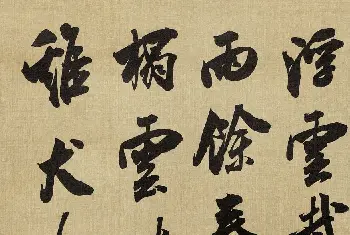 浮雲
雨餘
榻雲
雞犬